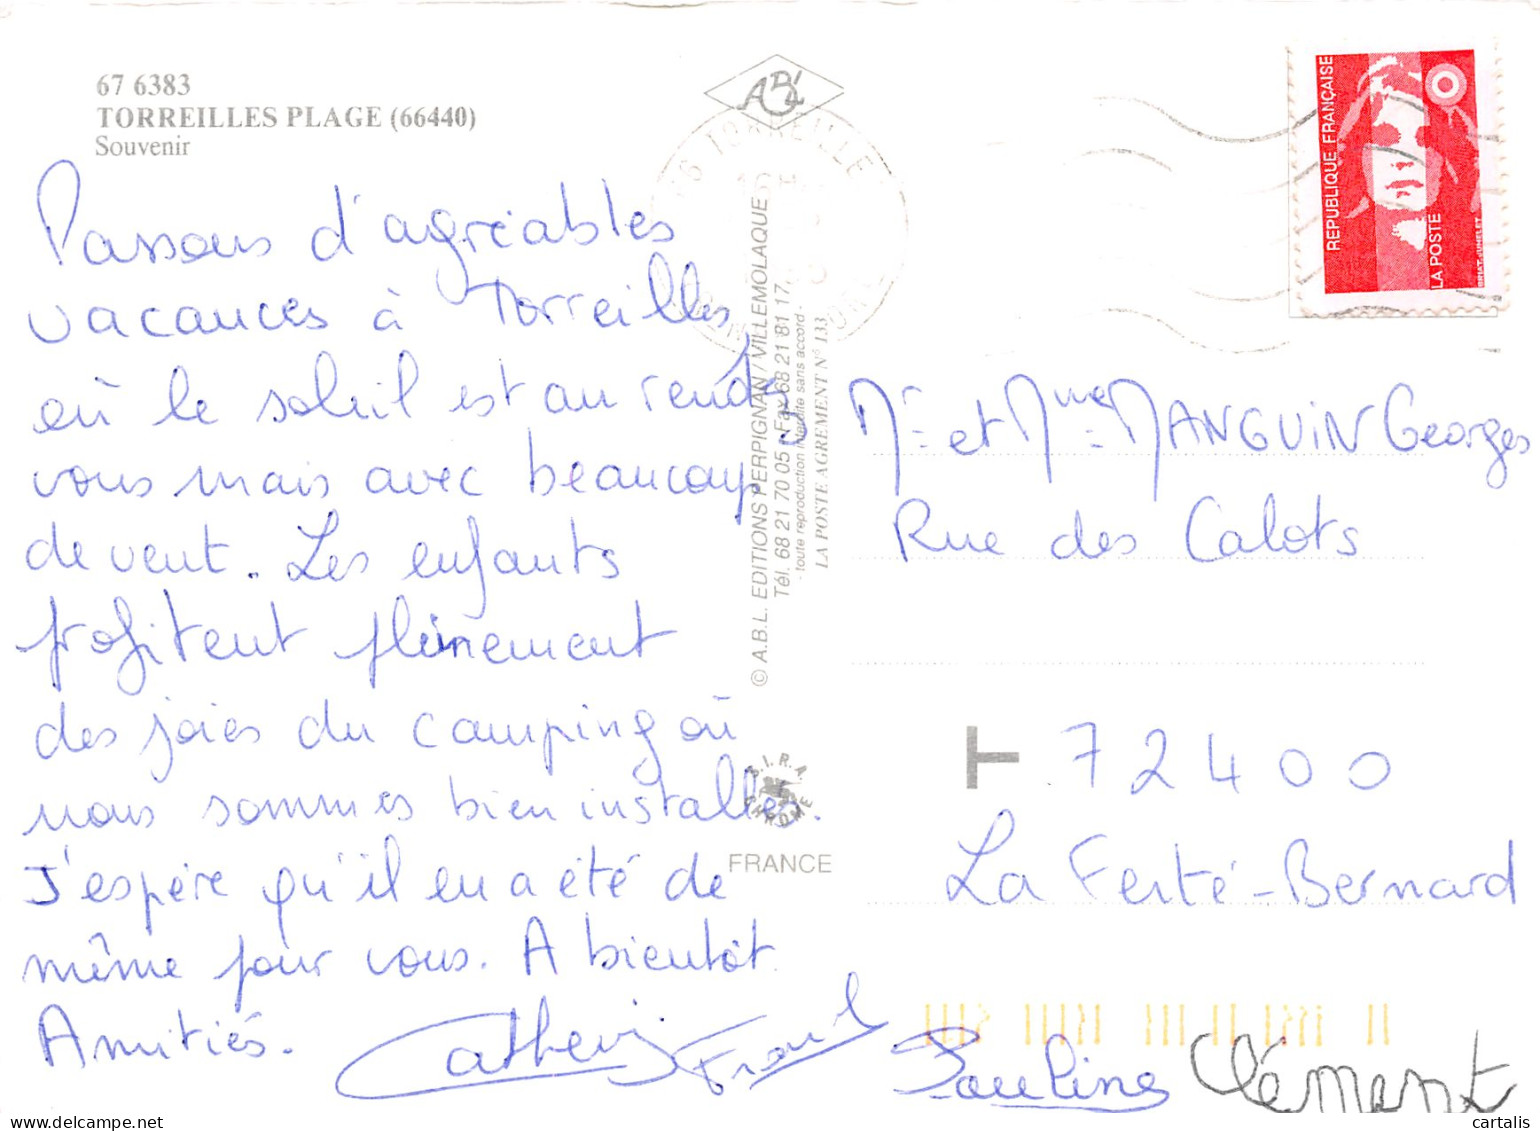 67 6383
TORREILLES PLAGE (66440)
Souvenir
Passons d'agréables
vacances à Torreilles
où le soleil est au rendez
vous mais avec beaucoup
de vent. Les enfants
profitent pleinement
des joies du camping où
nous sommes bien installés.
J'espère qu'il en a été de
même pour vous. A bientôt
Amitiés.
Catherine
Pauline
Clément
© A.B.L. EDITIONS PERPIGNAN / VILLEMOLAQUE
Tél. 68 21 70 05 - Fax 68 21 81 17
- toute reproduction interdite sans accord -
LA POSTE AGREMENT N° 133
FRANCE
REPUBLIQUE FRANÇAISE
LA POSTE
Mr et Mme MANGUIN Georges
Rue des Calots
T 72400
La Ferté-Bernard
cartalis